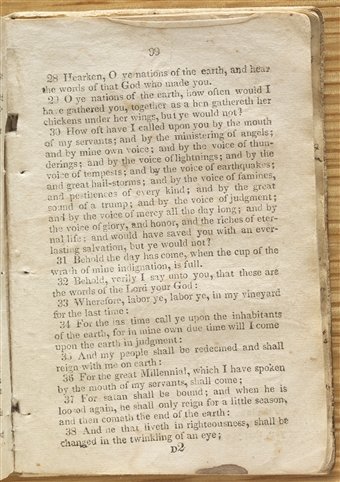 99
28 Hearken, O ye nations of the earth, and hear
the words of that God who made you.
29 O ye nations of the earth, how often would I
have gathered you, together as a hen gathereth her
chickens under her wings, but ye would not?
30 How oft have I called upon you by the mouth
of my servants; and by the ministering of angels;
and by mine own voice; and by the voice of thun-
derings; and by the voice of lightnings; and by the
voice of tempests; and by the voice of earthquakes;
and great hail-storms; and by the voice of famines,
and pestilences of every kind; and by the great
sound of a trump; and by the voice of judgment;
and by the voice of mercy all the day long; and by
the voice of glory, and honor, and the riches of eter-
nal life; and would have saved you with an ever-
lasting salvation, but ye would not?
31 Behold the day has come, when the cup of the
wrath of mine indignation, is full.
32 Behold, verily I say unto you, that these are
the words of the Lord your God:
33 Wherefore, labor ye, labor ye, in my vineyard
for the last time:
34 For the las time call ye upon the inhabitants
of the earth, for in mine own due time will I come
upon the earth in judgment:
35 And my people shall be redeemed and shall
reign with me on earth:
36 For the great Millennial, which I have spoken
by the mouth of my servants, shall come;
37 For satan shall be bound; and when he is
loosed again, he shall only reign for a little season,
and then cometh the end of the earth:
38 And he that liveth in righteousness, shall be
changed in the twinkling of an eye;
D2